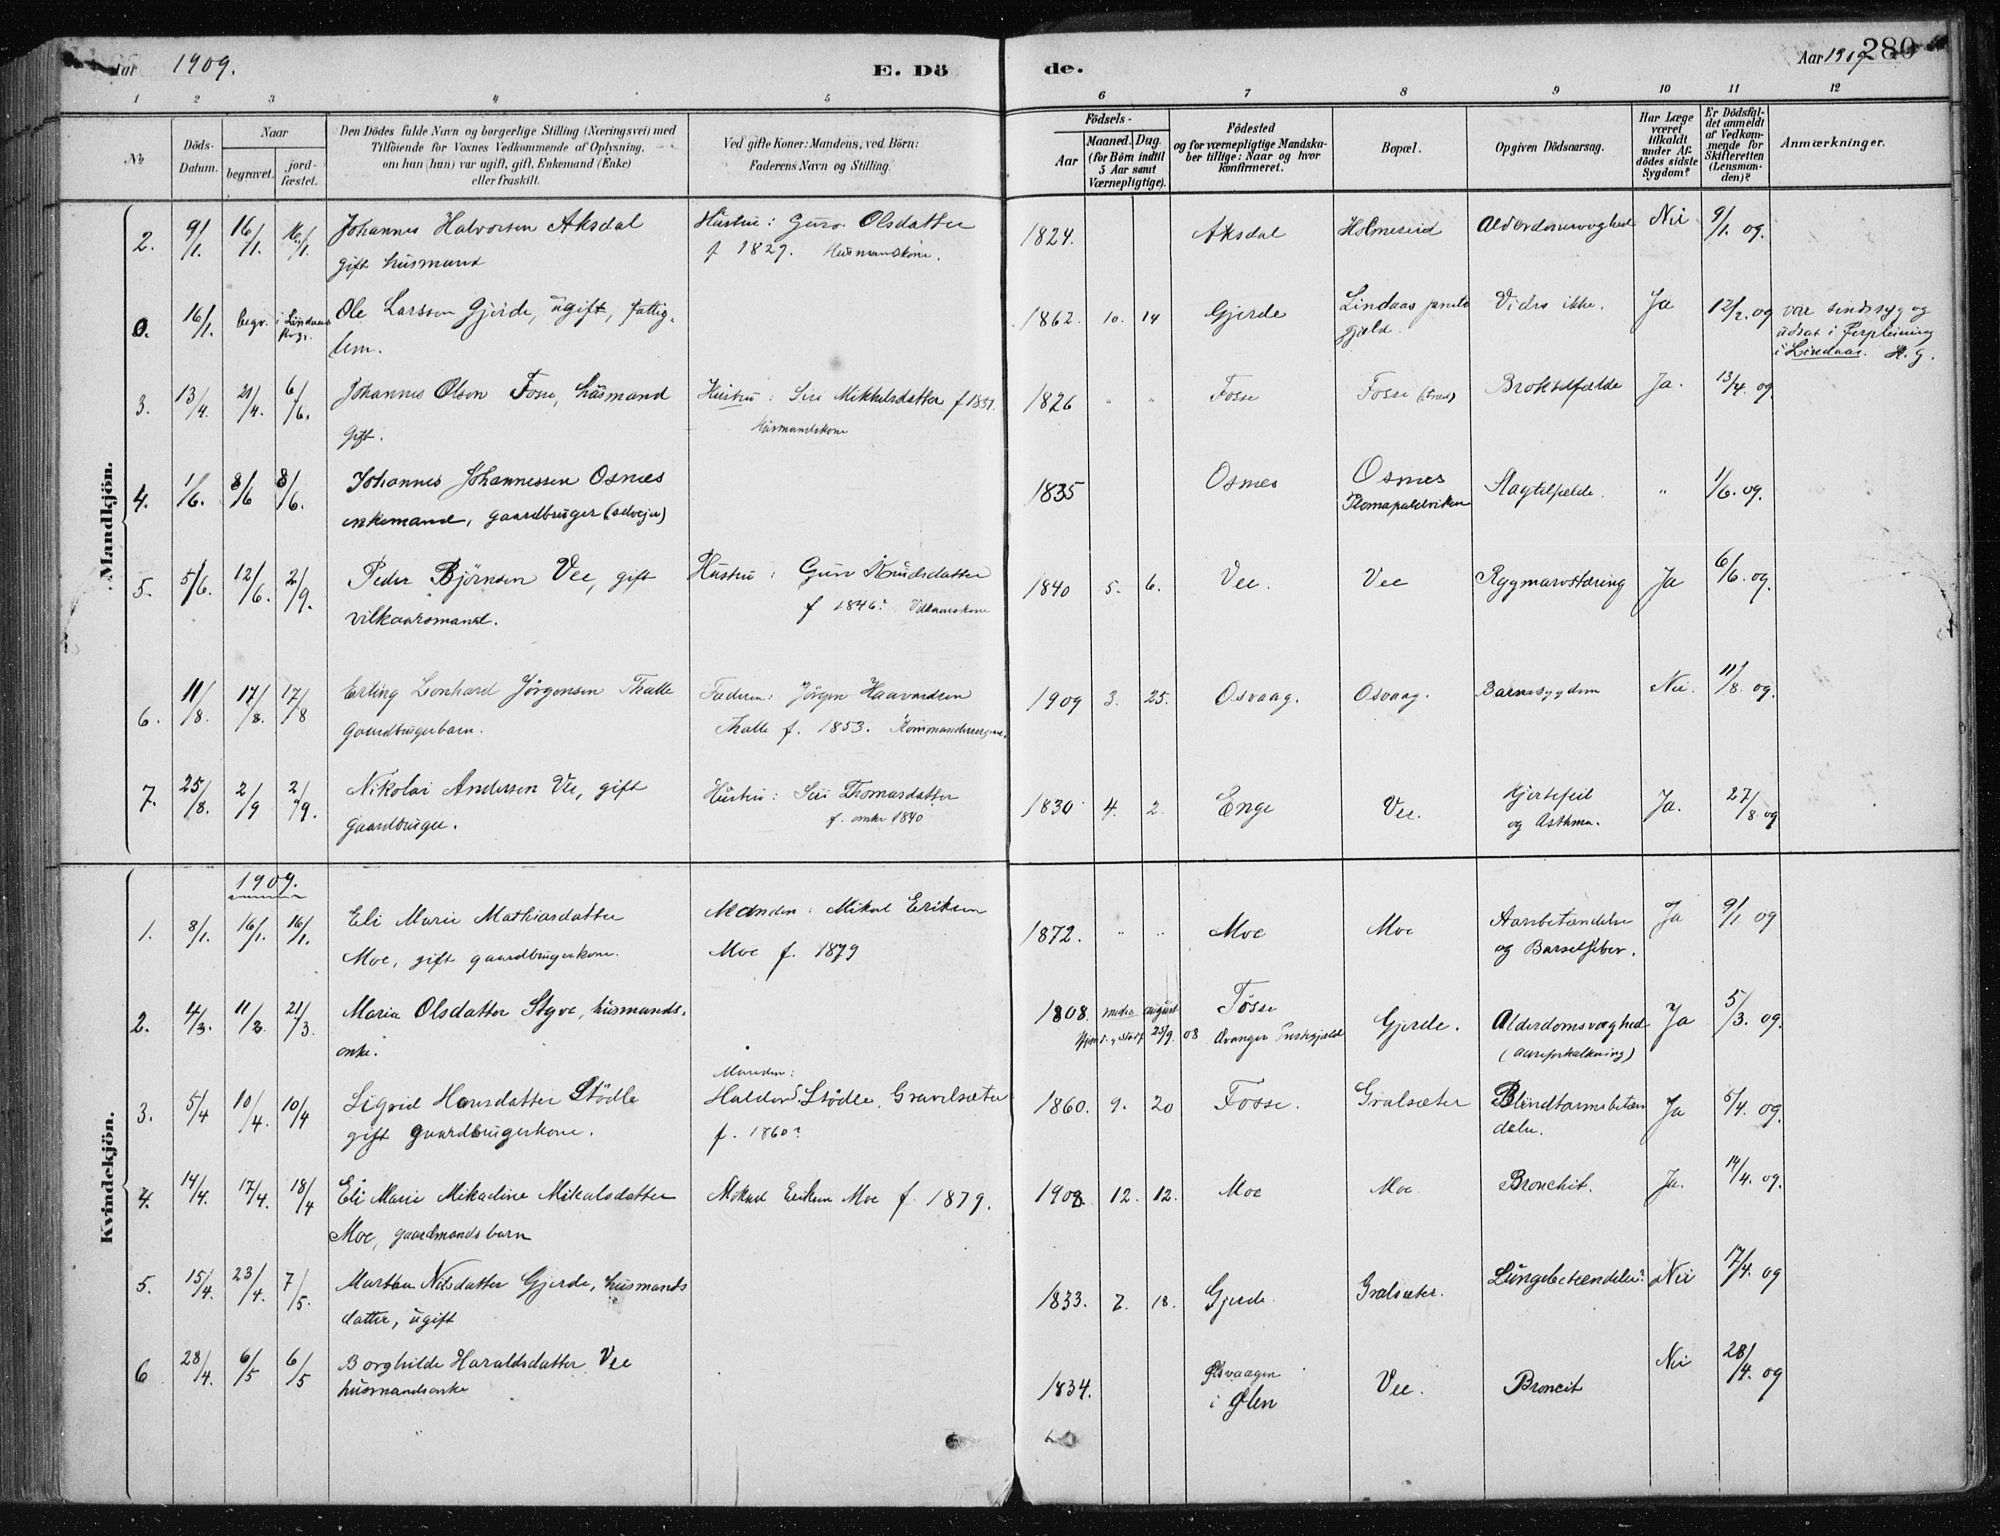 Aar 1909.
E. Dö
de.
Aar 1909
280
1 2 3 4 5 6 7 8 9 10 11 12
No
Döds-Datum.
Naar
begravet.
jord-fæstet.
Den Dödes fulde Navn og borgerlige Stilling (Næringsvei) med
Tilföiende for Voxnes Vedkommende af Oplysning,
om han (hun) var ugift, gift, Enkemand (Enke)
eller fraskilt.
Ved gifte Koner: Mandens, ved Börn:
Faderens Navn og Stilling.
Födsels-
Aar
Maaned. Dag.
(for Börn indtil
5 Aar samt
Værnepligtige).
Födested
og for værnepligtige Mandska-
ber tillige: Naar og hvor
konfirmeret.
Bopæl.
Opgiven Dödsaarsag.
Har Læge
været
tilkaldt
under Af-
dödes sidste
Sygdom?
Er Dödsfal-
det anmeldt
af Vedkom-
mende for
Skifteretten
(Lensman-
den)?
Anmærkninger.
Mandkjön.
2. 9/1. 16/1. 16/1. Johannes Halvorsen Aksdal Hustru: Guro Olsdatter 1824. Aksdal Holmeseid Alderdomsvaghed Nei 9/1. og.
gift husmand f 1829. Husmandskone.
0. 16/1. begr. i Lindaas Ole Larssen Gjerde, ugift, fattig- 1862. 10. 14 Gjerde Lindaas preste Vides ikke. Ja 12/2. og var sindssyg og
lem. gjeld. udsat i Forpleining
i Lindaas. H. G.
3. 13/4. 21/4. 6/6. Johannes Olsen Fosse, husmand Hustru: Siri Mikkelsdatter f 1831. 1826 " " Fosse Fosse Broktilfælde Ja. 13/4. og
gift. Husmandskone
4. 1/6. 8/6 8/6. Johannes Johannessen Osnes 1835 Osnes Osnes Slagtilfælde. " 1/6. og.
enkemand, gaardbruger (selveier)
5. 5/6. 12/6. 2/9. Peder Björnsen Vee, gift Hustru: Guro Knudsdatter 1840 5. 6. Vee. Vee Rygmarvstæring Ja 6/6. og.
vilkaarsmand. f 1846?
6. 11/8. 17/8. 17/8 Erling Leonhard Jörgensen Thalle Faderen: Jörgen Haavardsen 1909 3. 25. Osvaag. Osvaag. Barnesygdom Nei. 11/8. og.
gaardbrugerbarn. Thalle f. 1853.
7. 25/8. 2/9 2/9. Nikolai Andersen Vee, gift Hustru: Siri Thomasdatter 1830 4. 2. Enge Vee. Hjertefeil Ja. 27/8. og
gaardbruger. f. omkr 1840 og Asthma.
Kvindekjön.
1909.
1. 8/1. 16/1. 16/1. Eli Marie Mathiasdatter Manden: Mikal Eriksen 1872. " " Moe Moe Aarebetændelse Ja 9/1 og
Moe, gift gaardbrugerkone. Moe f. 1879 og Barselfeber.
2. 4/3. 11/3. 21/3 Maria Olsdatter Styve, husmands- 1808. medio august Fosse Gjerde. Alderdomsvaghed Ja 5/3. og.
enke. 25/9. 08 (aareforkalkning)
3. 5/4 10/4. 10/4 Sigrid Hansdatter Stödle Manden: 1860. 9. 20 Fosse. Gralsæter Blindtarmsbetæn Ja 5/4. og
gift gaardbrugerkone. Haldor S. Stödle, Gravelsæter delse.
f. 1860?
4. 14/4. 17/4. 18/4 Eli Marie Mikaeline Mikalsdatter Mikal Eriksen Moe f. 1879. 1908 12. 12. Moe Moe Bronchit. Ja. 14/4. og.
Moe, gaardmandsbarn
5. 15/4. 23/4. 7/5. Martha Nilsdatter Gjerde, husmands 1833. 7. 18. Gjerde. Gralsæter. Lungebetændelse? Nei 17/4. og
datter, ugift
6 28/4. 6/5 6/5 Borghilde Haraldsdatter Vee 1834. Ølsvaagen Vee. Broncit Nei 28/4. og
husmandsenke i Ølen